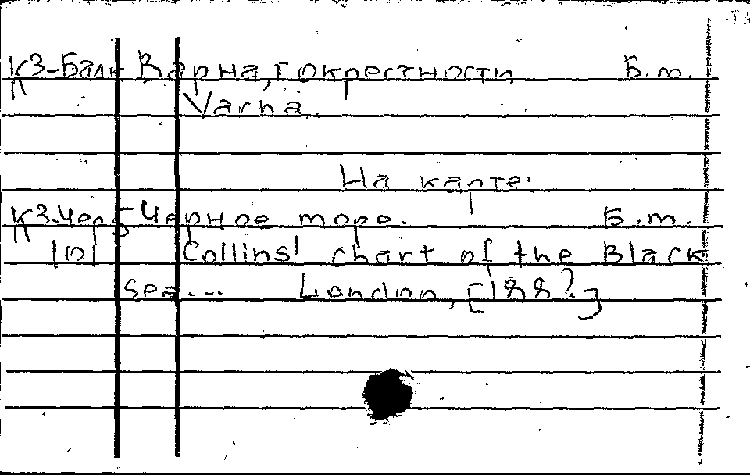 К3-Балк Варна, г окрестности Б.м.
Varna.
На карте:
К3-Чер Черное море. Б.м.
101 Collins' chart of the Black
sea... London, [188?]